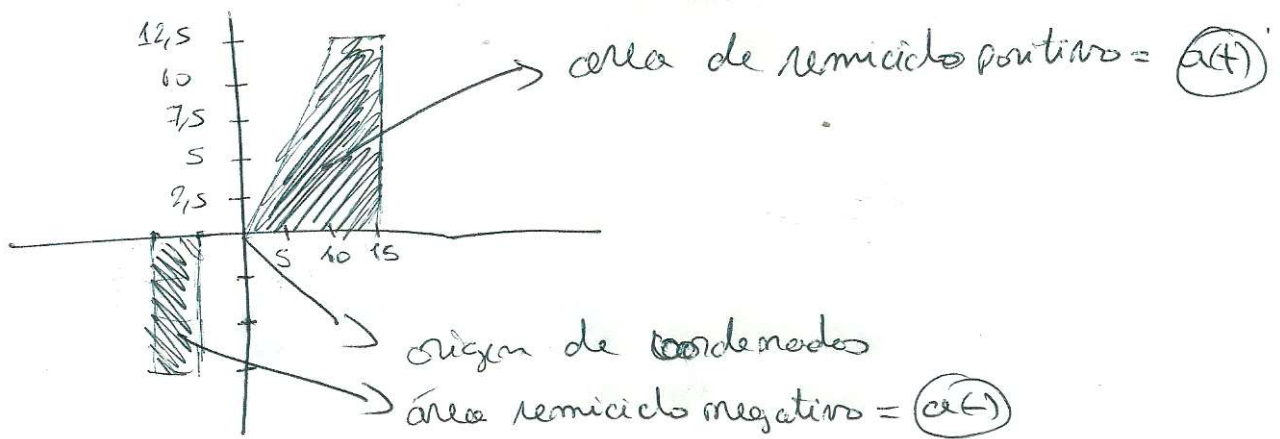 12,5
10
7,5
5
2,5
5 10 15
area de semiciclo positivo = a(+)
origen de coordenadas
área semiciclo negativo = a(-)